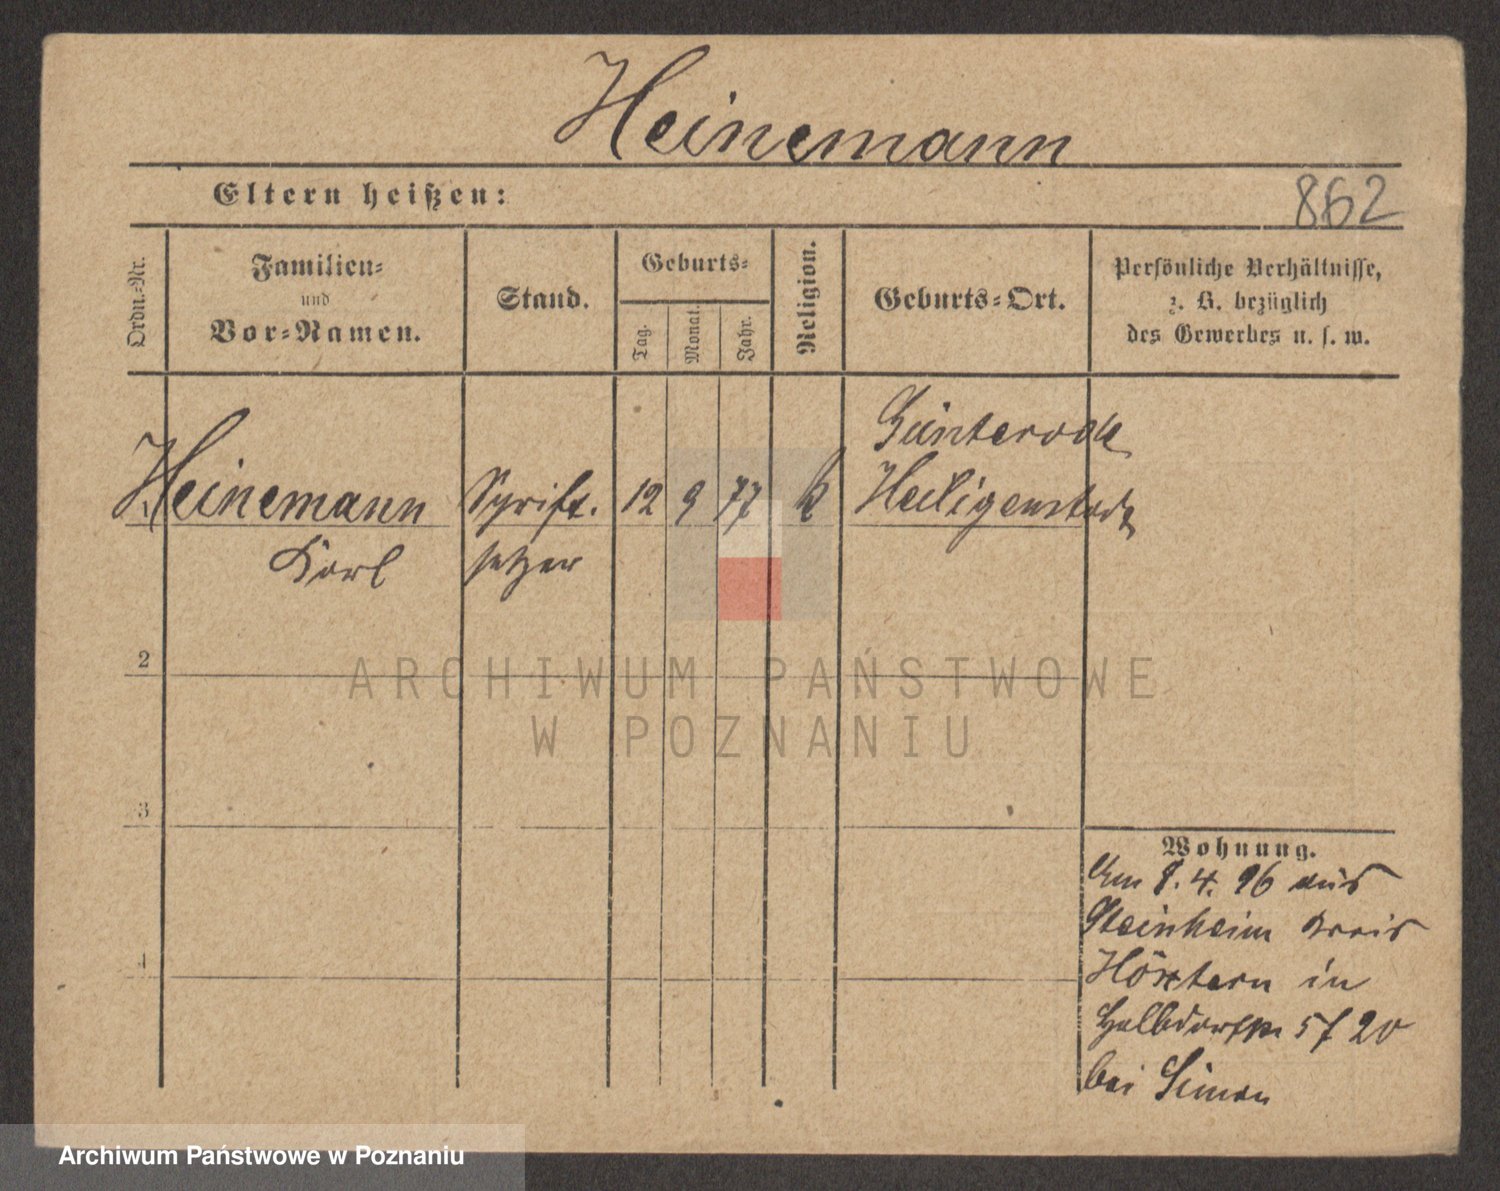 Heinemann
Eltern heißen:
862
Ordn.-Nr.
Familien-
und
Vor-Namen.
Stand.
Geburts-
Tag.
Monat.
Jahr.
Religion.
Geburts-Ort.
Persönliche Verhältnisse,
z. B. bezüglich
des Gewerbes u. s. w.
Günterode
Heinemann Schrift. 12 9 77 k Heiligenstadt
Karl setzer
2
ARCHIWUM PAŃSTWOWE
W POZNANIU
3
Wohnung.
Am 8. 4. 96 aus
Steinheim Kreis
4
Höxtern in
Halbdorfstr 20
bei Simon
Archiwum Państwowe w Poznaniu